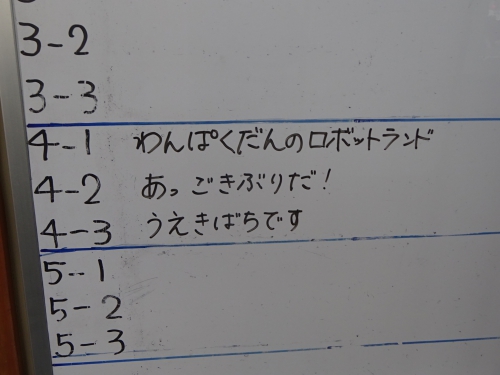 3-2
3-3
4-1 わんぱくだんのロボットランド
4-2 あっごきぶりだ!
4-3 うえきばちです
5-1
5-2
5-3